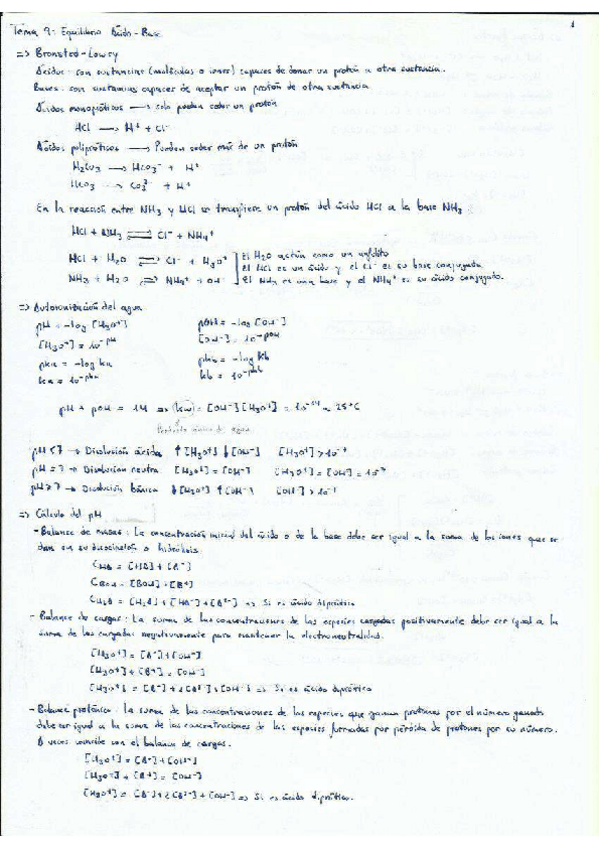 1
Tema 9: Equilibrio Ácido-Base
=> Bronsted-Lowry
Ácidos: son sustancias (moléculas o iones) capaces de donar un protón a otra sustancia.
Bases: son sustancias capaces de aceptar un protón de otra sustancia.
Ácidos monopróticos → solo pueden ceder un protón
HCl → H⁺ + Cl⁻
Ácidos polipróticos → Pueden ceder más de un protón
H₂CO₃ → HCO₃⁻ + H⁺
HCO₃ → CO₃²⁻ + H⁺
En la reacción entre NH₃ y HCl se transfiere un protón del ácido HCl a la base NH₃
HCl + NH₃ ⇌ Cl⁻ + NH₄⁺
HCl + H₂O ⇌ Cl⁻ + H₃O⁺ El H₂O actúa como un anfolito
El HCl es un ácido y el Cl⁻ es su base conjugada
NH₃ + H₂O ⇌ NH₄⁺ + OH⁻ El NH₃ es una base y el NH₄⁺ es su ácido conjugado.
=> Autoionización del agua
pH = -log [H₃O⁺] pOH = -log [OH⁻]
[H₃O⁺] = 10^-pH [OH⁻] = 10^-pOH
pka = -log ka pkb = -log kb
ka = 10^-pka kb = 10^-pkb
pH + pOH = 14 => (kw) = [OH⁻][H₃O⁺] = 10⁻¹⁴ a 25ºC
Producto iónico del agua
pH < 7 → Disolución ácida ↑[H₃O⁺] ↓[OH⁻] [H₃O⁺] > 10⁻⁷
pH = 7 → Disolución neutra [H₃O⁺] = [OH⁻] [H₃O⁺] = [OH⁻] = 10⁻⁷
pH > 7 → Disolución básica ↓[H₃O⁺] ↑[OH⁻] [OH⁻] > 10⁻⁷
=> Cálculo del pH
- Balance de masas: La concentración inicial del ácido o de la base debe ser igual a la suma de los iones que se
dan en su disociación o hidrólisis.
CHB = [HB] + [B⁻]
CBOH = [BOH] + [B⁺]
CH₂B = [H₂B] + [HB⁻] + [B²⁻] => Si es ácido diprótico
- Balance de cargas: La suma de las concentraciones de las especies cargadas positivamente debe ser igual a la
suma de las cargadas negativamente para mantener la electroneutralidad.
[H₃O⁺] = [B⁻] + [OH⁻]
[H₃O⁺] + [B⁺] = [OH⁻]
[H₃O⁺] = [B⁻] + 2[B²⁻] + [OH⁻] => Si es ácido diprótico
- Balance protónico: La suma de las concentraciones de las especies que ganan protones por el número ganado
debe ser igual a la suma de las concentraciones de las especies formadas por pérdida de protones por su número.
A veces coincide con el balance de cargas.
[H₃O⁺] = [B⁻] + [OH⁻]
[H₃O⁺] + [B⁺] = [OH⁻]
[H₃O⁺] = [B⁻] + 2[B²⁻] + [OH⁻] => Si es ácido diprótico.